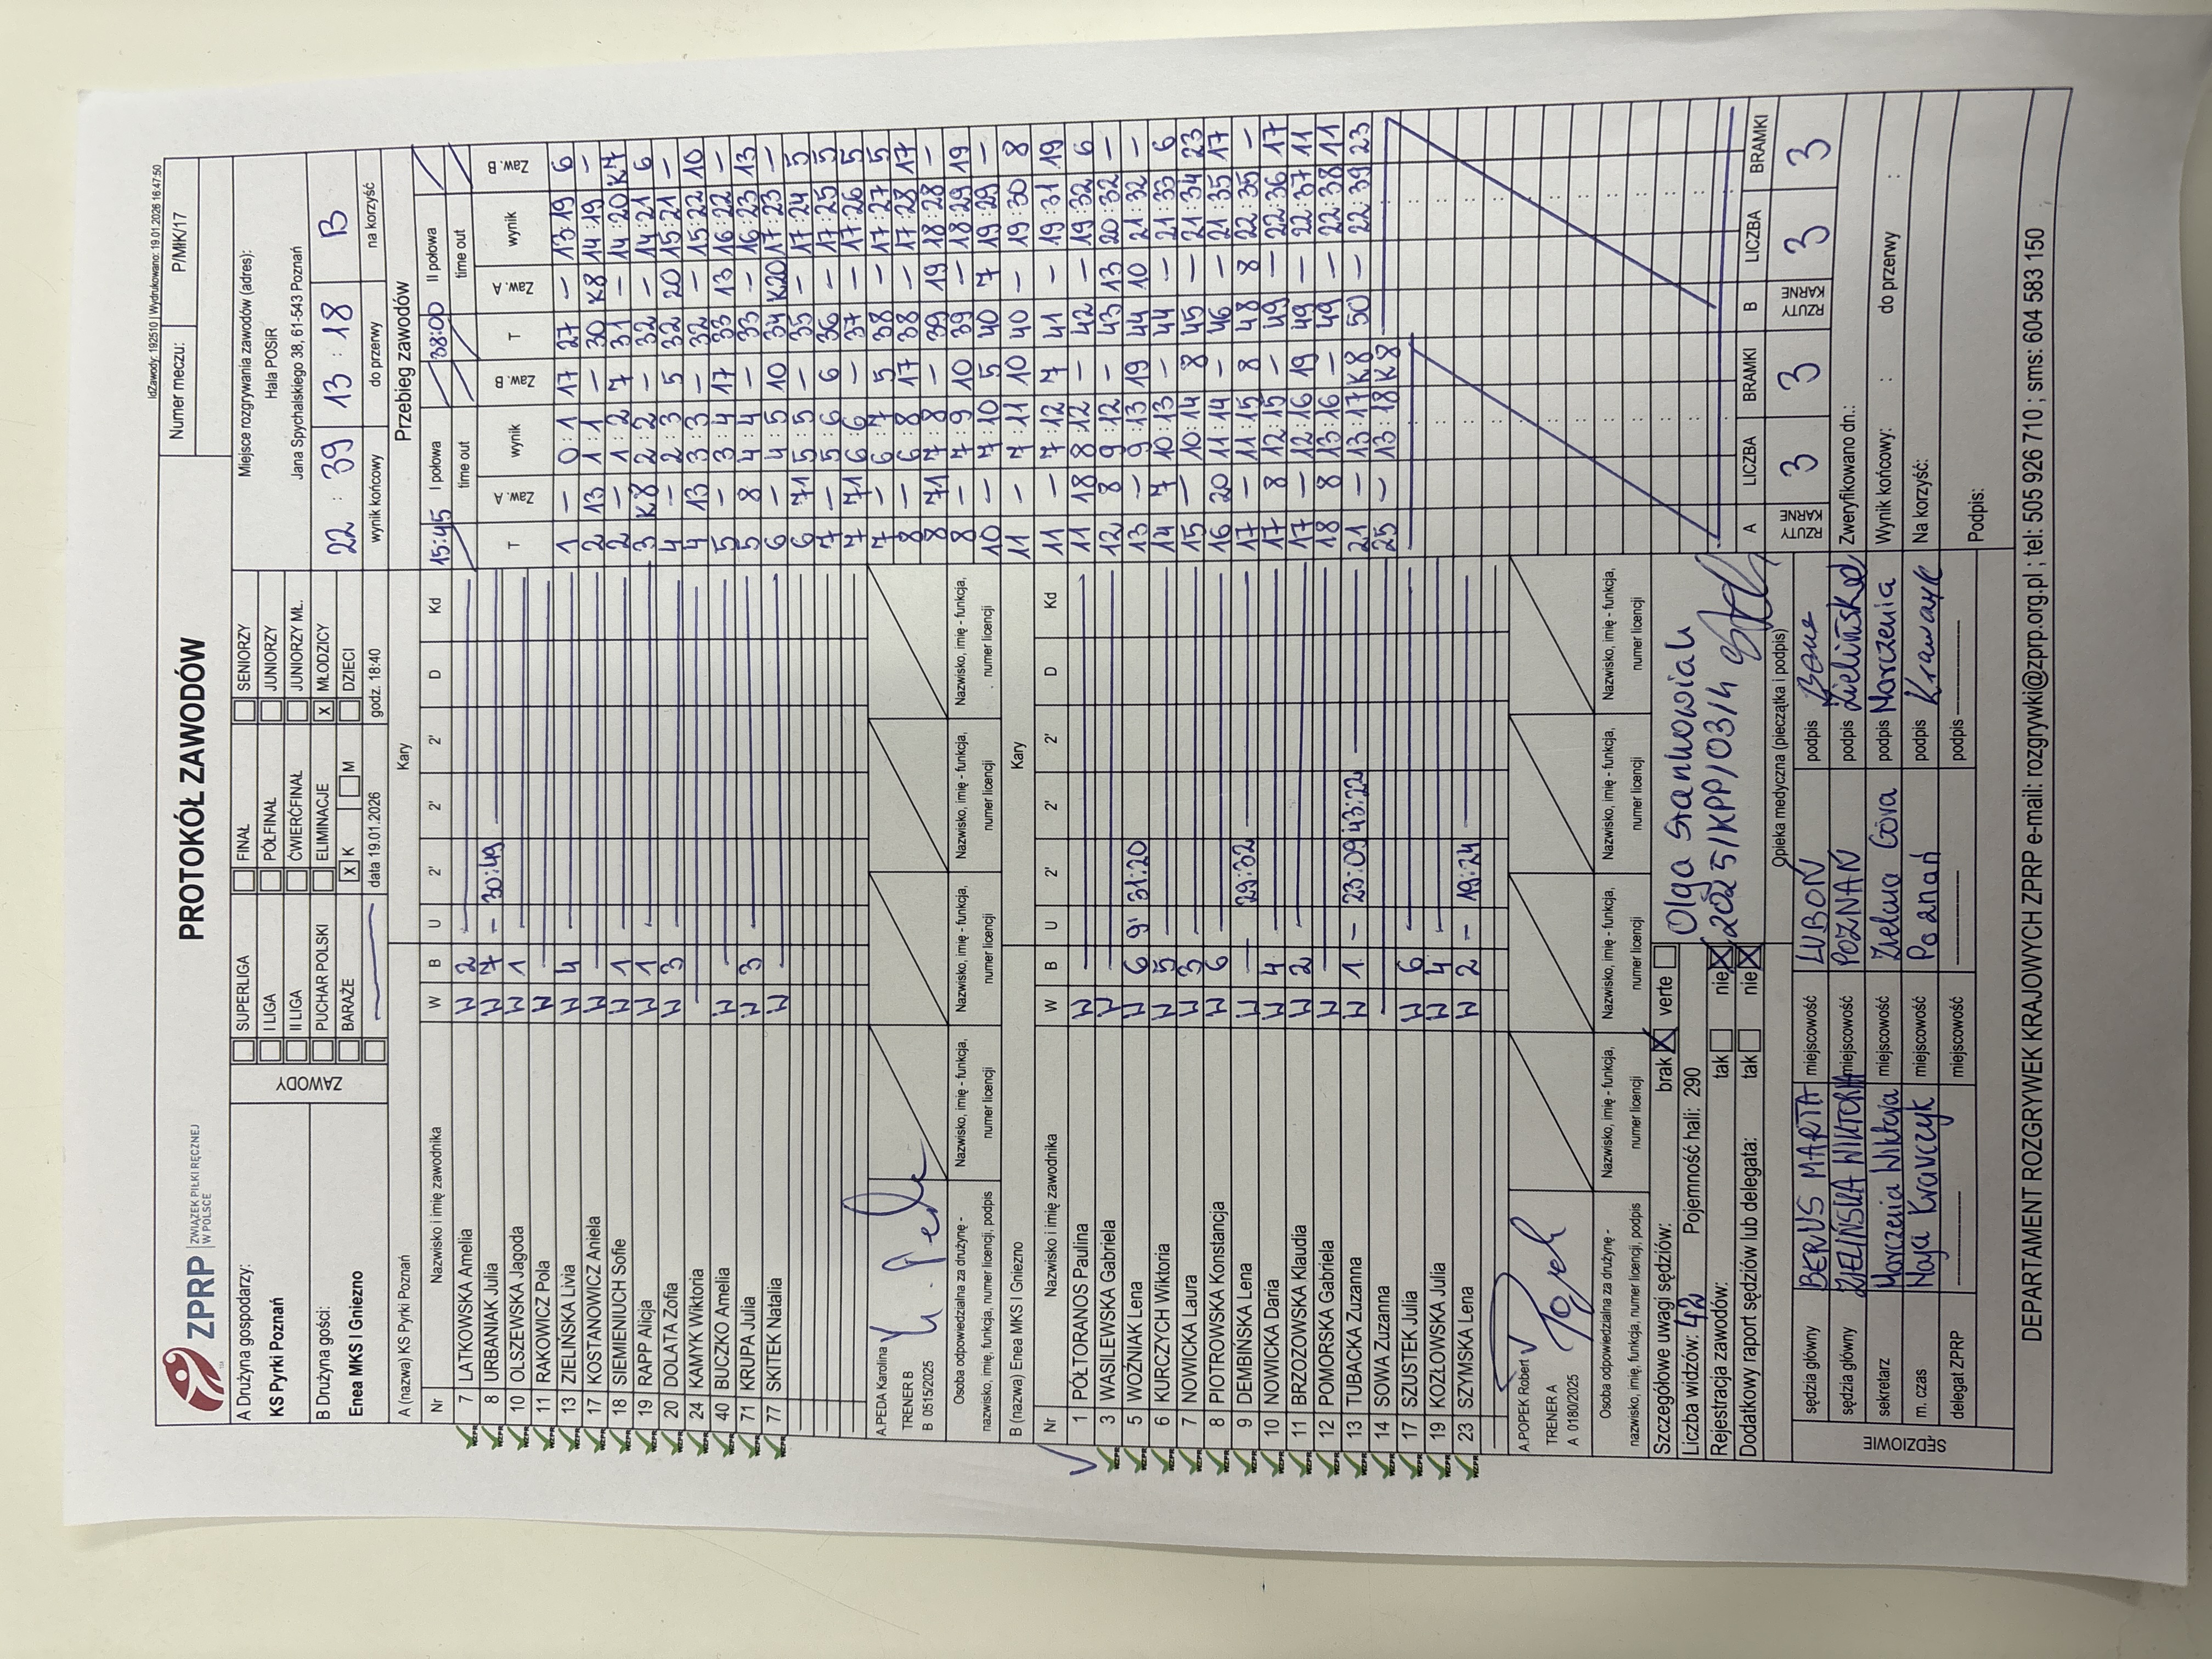 IdZawody: 192510 | Wydrukowano: 19.01.2026 16:47:50
ZPRP
ZWIĄZEK PIŁKI RĘCZNEJ
W POLSCE
PROTOKÓŁ ZAWODÓW
Numer meczu: P/MłK/17
A Drużyna gospodarzy:
KS Pyrki Poznań
B Drużyna gości:
Enea MKS I Gniezno
ZAWODY
SUPERLIGA
I LIGA
II LIGA
PUCHAR POLSKI
BARAŻE
FINAŁ
PÓŁFINAŁ
ĆWIERĆFINAŁ
ELIMINACJE
X K M
data 19.01.2026
SENIORZY
JUNIORZY
JUNIORZY MŁ.
X MŁODZICY
DZIECI
godz. 18:40
Miejsce rozgrywania zawodów (adres):
Hala POSiR
Jana Spychalskiego 38, 61-543 Poznań
22 : 39 13 : 18 B
wynik końcowy do przerwy na korzyść
A (nazwa) KS Pyrki Poznań Kary
Nr Nazwisko i imię zawodnika W B U 2' 2' 2' D Kd
7 LATKOWSKA Amelia W 2
8 URBANIAK Julia W 7 - 30:49
10 OLSZEWSKA Jagoda W 1
11 RAKOWICZ Pola W
13 ZIELIŃSKA Livia W 4
17 KOSTANOWICZ Aniela W
18 SIEMIENIUCH Sofie W 1
19 RAPP Alicja W 1
20 DOLATA Zofia W 3
24 KAMYK Wiktoria
40 BUCZKO Amelia W
71 KRUPA Julia W 3
77 SKITEK Natalia W
A.PEDA Karolina
TRENER B
B 0515/2025
Osoba odpowiedzialna za drużynę -
nazwisko, imię, funkcja, numer licencji, podpis
Nazwisko, imię - funkcja,
numer licencji
Nazwisko, imię - funkcja,
numer licencji
Nazwisko, imię - funkcja,
numer licencji
Nazwisko, imię - funkcja,
numer licencji
B (nazwa) Enea MKS I Gniezno Kary
Nr Nazwisko i imię zawodnika W B U 2' 2' 2' D Kd
1 PÓŁTORANOS Paulina W
3 WASILEWSKA Gabriela W
5 WOŹNIAK Lena W 6 9' 31:20
6 KURCZYCH Wiktoria W 5
7 NOWICKA Laura W 3
8 PIOTROWSKA Konstancja W 6
9 DEMBIŃSKA Lena W 29:32
10 NOWICKA Daria W 4
11 BRZOZOWSKA Klaudia W 2
12 POMORSKA Gabriela W
13 TUBACKA Zuzanna W 1 - 23:09 43:22
14 SOWA Zuzanna
17 SZUSTEK Julia W 6
19 KOZŁOWSKA Julia W 4
23 SZYMSKA Lena W 2 - 19:24
A.POPEK Robert
TRENER A
A 0180/2025
Osoba odpowiedzialna za drużynę -
nazwisko, imię, funkcja, numer licencji, podpis
Nazwisko, imię - funkcja,
numer licencji
Nazwisko, imię - funkcja,
numer licencji
Nazwisko, imię - funkcja,
numer licencji
Nazwisko, imię - funkcja,
numer licencji
Przebieg zawodów
15:45 I połowa 38:00 II połowa
time out time out
T Zaw. A wynik Zaw. B T Zaw. A wynik Zaw. B
1 - 0:1 17 27 - 13:19 6
2 13 1:1 - 30 K8 14:19 -
2 - 1:2 7 31 - 14:20 K7
3 K8 2:2 - 32 - 14:21 6
4 - 2:3 5 32 20 15:21 -
4 13 3:3 - 32 - 15:22 10
5 - 3:4 17 33 13 16:22 -
5 8 4:4 - 33 - 16:23 13
6 - 4:5 10 34 K20 17:23 -
6 71 5:5 - 35 - 17:24 5
7 - 5:6 6 36 - 17:25 5
7 71 6:6 - 37 - 17:26 5
7 - 6:7 5 38 - 17:27 5
8 - 6:8 17 38 - 17:28 17
8 71 7:8 - 39 19 18:28 -
8 - 7:9 10 39 - 18:29 19
10 - 7:10 5 40 7 19:29 -
11 - 7:11 10 40 - 19:30 8
11 - 7:12 7 41 - 19:31 19
11 18 8:12 - 42 - 19:32 6
12 8 9:12 - 43 13 20:32 -
13 - 9:13 19 44 10 21:32 -
14 7 10:13 - 44 - 21:33 6
15 - 10:14 8 45 - 21:34 23
16 20 11:14 - 46 - 21:35 17
17 - 11:15 8 48 8 22:35 -
17 8 12:15 - 49 - 22:36 17
17 - 12:16 19 49 - 22:37 11
18 8 13:16 - 49 - 22:38 11
21 - 13:17 K8 50 - 22:39 23
25 - 13:18 K8
A LICZBA BRAMKI B LICZBA BRAMKI
RZUTY KARNE 3 3 RZUTY KARNE 3 3
Szczegółowe uwagi sędziów: brak X verte
Liczba widzów: 42 Pojemność hali: 290
Rejestracja zawodów: tak nie X
Dodatkowy raport sędziów lub delegata: tak nie X
Olga Stankowiak
2025/KPP/03/4
Opieka medyczna (pieczątka i podpis)
SĘDZIOWIE
sędzia główny BERUS MARTA miejscowość LUBOŃ podpis
sędzia główny ZIELIŃSKA WIKTORIA miejscowość POZNAŃ podpis Zielińska
sekretarz Marczenia Wiktoria miejscowość Zielona Góra podpis Marczenia
m. czas Maja Krawczyk miejscowość Poznań podpis Krawczyk
delegat ZPRP miejscowość podpis
Zweryfikowano dn.:
Wynik końcowy: : do przerwy :
Na korzyść:
Podpis:
DEPARTAMENT ROZGRYWEK KRAJOWYCH ZPRP e-mail: rozgrywki@zprp.org.pl ; tel: 505 926 710 ; sms: 604 583 150